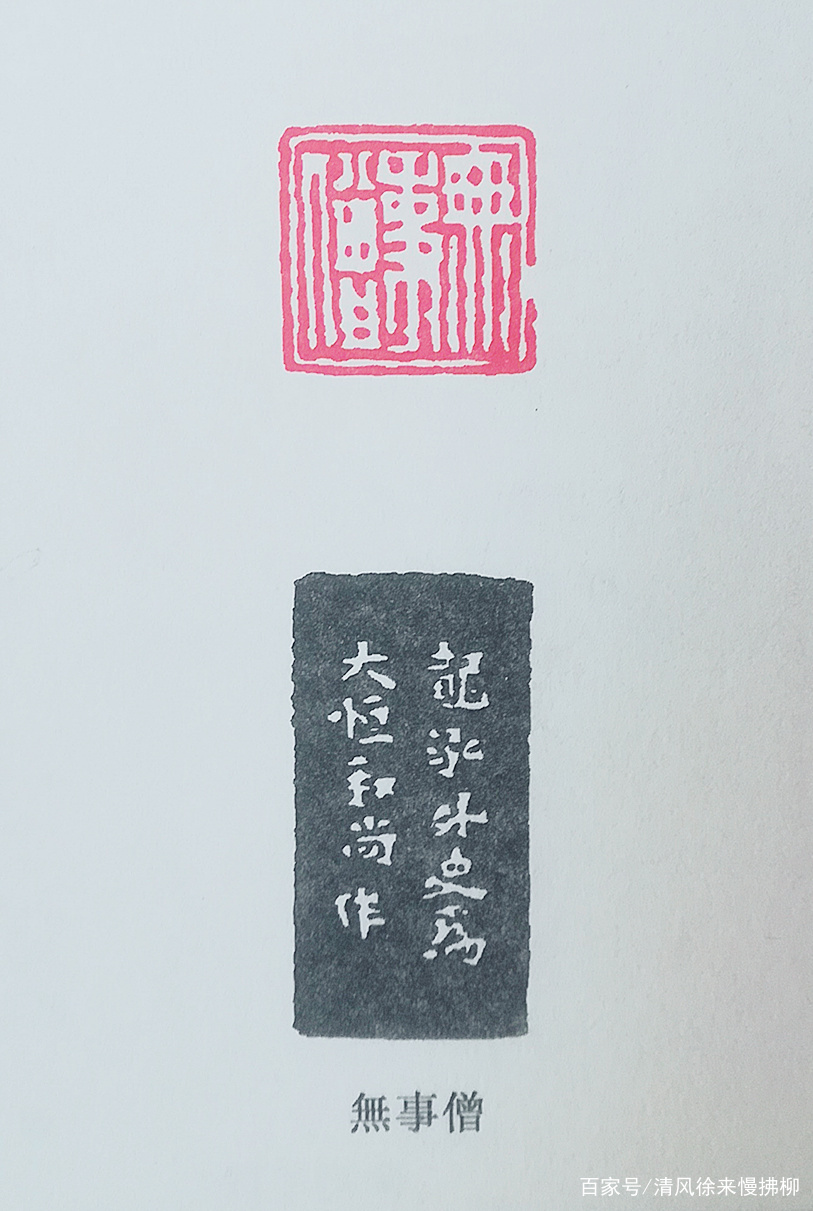 無事僧
龍泓外史為
大恒和尚作
無事僧
百家号/清风徐来慢拂柳